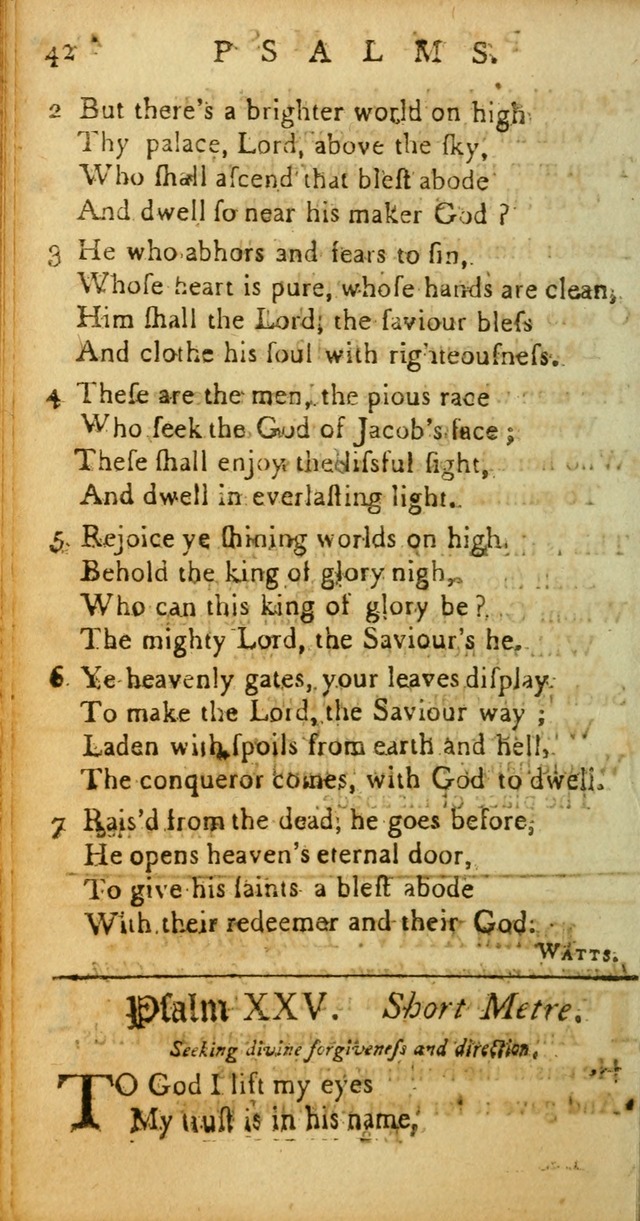 42 PSALMS.
2 But there's a brighter world on high
Thy palace, Lord, above the ſky,
Who ſhall aſcend that bleſt abode
And dwell ſo near his maker God ?
3 He who abhors and fears to ſin,
Whoſe heart is pure, whoſe hands are clean,
Him ſhall the Lord, the ſaviour bleſs
And clothe his ſoul with righteouſneſs.
4 Theſe are the men, the pious race
Who ſeek the God of Jacob's face ;
Theſe ſhall enjoy the liſsful ſight,
And dwell in everlaſting light.
5. Rejoice ye ſhining worlds on high,
Behold the king of glory nigh,
Who can this king of glory be ?
The mighty Lord, the Saviour's he.
6. Ye heavenly gates, your leaves diſplay
To make the Lord, the Saviour way ;
Laden with ſpoils from earth and hell,
The conqueror comes, with God to dwell.
7 Rais'd from the dead, he goes before,
He opens heaven's eternal door,
To give his ſaints a bleſt abode
With their redeemer and their God.
WATTS.
Pſalm XXV. Short Metre.
Seeking divine forgiveneſs and direction.
TO God I lift my eyes
My truſt is in his name,